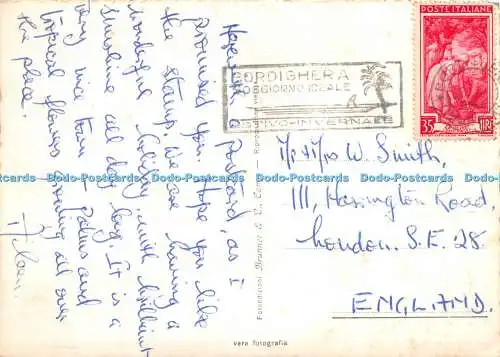 Here's a Postcard, as I
promised you. Hope you like
the stamp. We are having a
wonderful holiday with brilliant
sunshine all day long. It is a
very nice town – Palms and
tropical flowers growing all over
the place.
BORDIGHERA
SOGGIORNO IDEALE
ESTIVO-INVERNALE
POSTE ITALIANE
35 LIRE
Mr & Mrs W. Smith,
111, Harington Road,
London. S.E. 28.
ENGLAND.
vera fotografia
Dodo-Postcards Dodo-Postcards Dodo-Postcards Dodo-Postcards Dodo-Postcards Dodo-Postcards